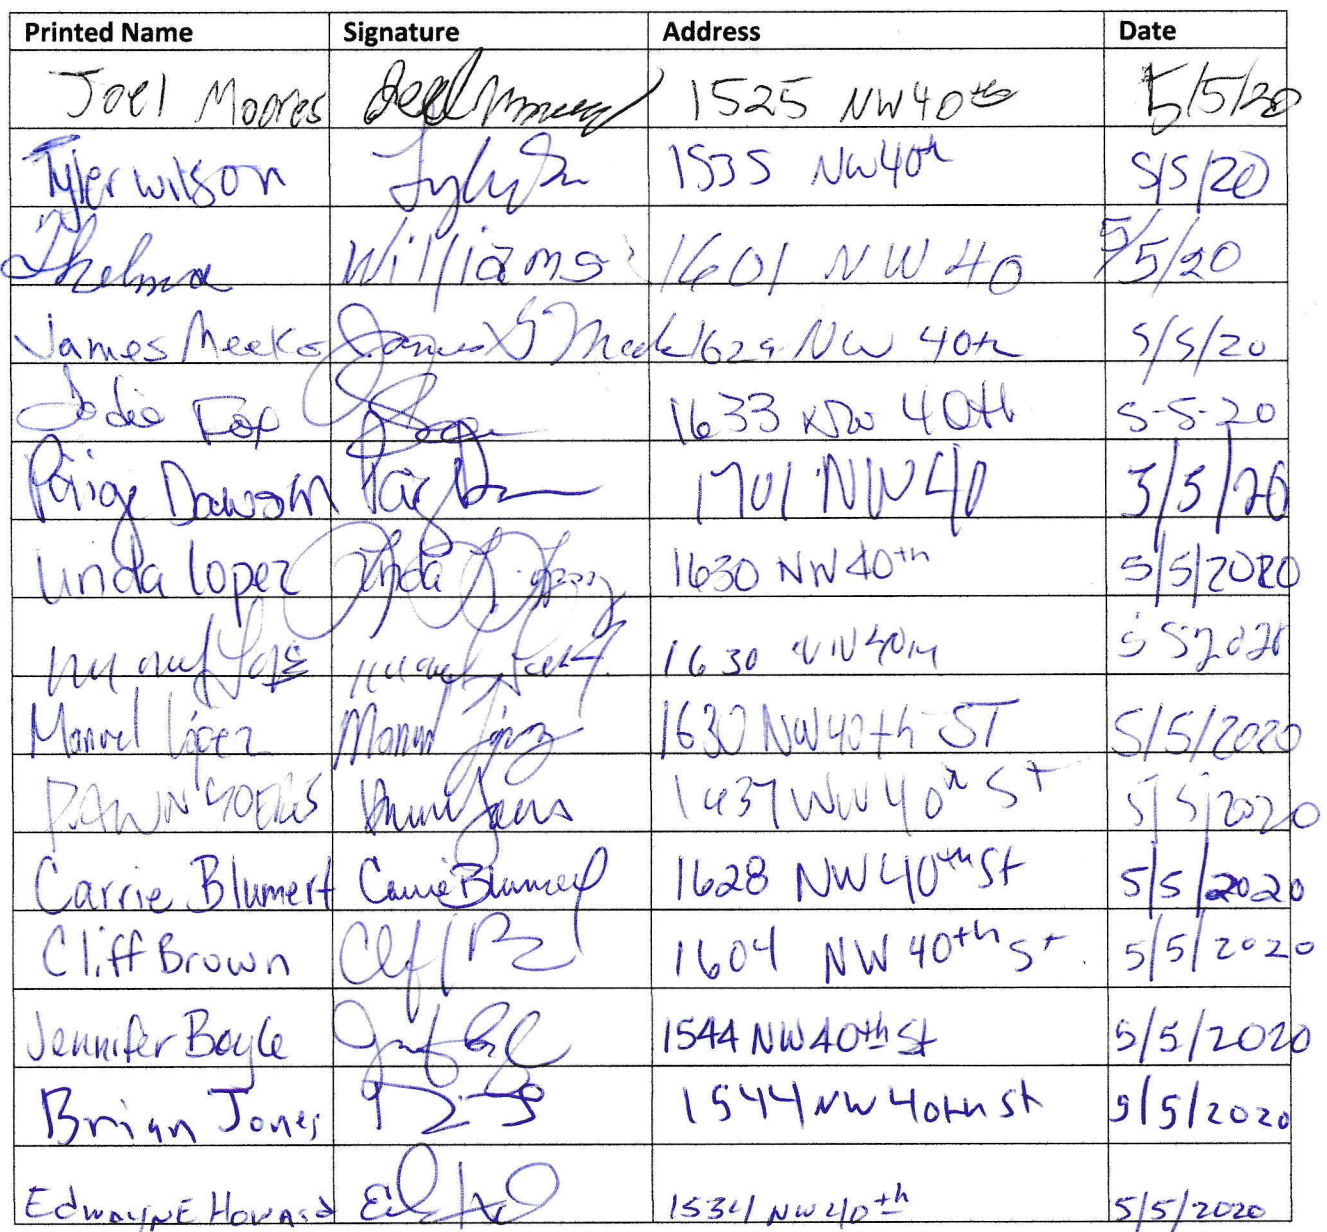 Printed Name Signature Address Date
Joel Moores Joel Moores 1525 NW 40th 5/5/20
Tyler Wilson 1535 NW 40th 5/5/20
Thelma Williams 1601 NW 40 5/5/20
James Meeks James Meek 1629 NW 40th 5/5/20
Jodie Fox 1633 NW 40th 5-5-20
Paige Dawson 1701 NW 40 5/5/20
Linda Lopez Linda Lopez 1630 NW 40th 5/5/2020
1630 NW 40TH 5 5 2020
Manuel López Manuel López 1630 NW 40th ST 5/5/2020
DAWN NW 40th St 5/5/2020
Carrie Blumert Carrie Blumert 1628 NW 40th St 5/5/2020
Cliff Brown 1604 NW 40th St. 5/5/2020
Jennifer Boyle 1544 NW 40th St 5/5/2020
Brian Jones 1544 NW 40th St 5/5/2020
Edwayne Howard 1534 NW 40th 5/5/2020